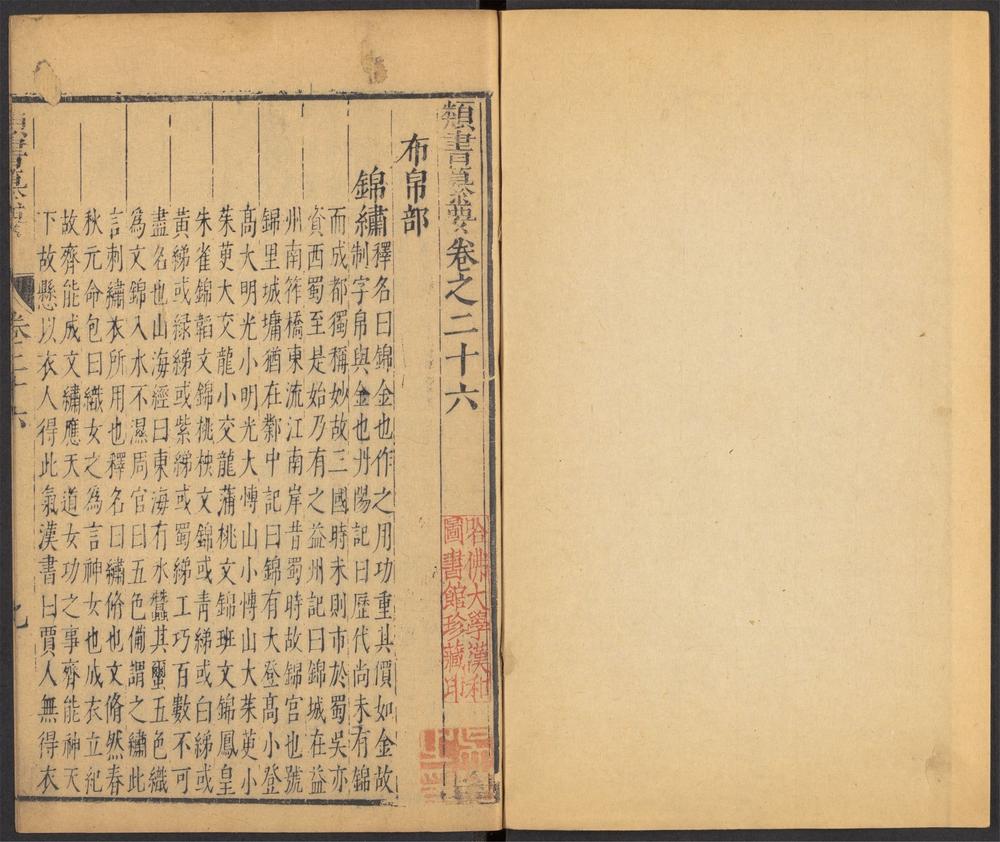 類書纂要卷之二十六
哈佛大學漢和
圖書館珍藏印
布帛部
錦繡釋名曰錦金也作之用功重其價如金故
制字帛與金也丹陽記曰歷代尚未有錦
而成都獨稱妙故三國時未則市於蜀吳亦
資西蜀至是始乃有之益州記曰錦城在益
州南筰橋東流江南岸昔蜀時故錦宮也號
錦里城墉猶在鄴中記曰錦有大登高小登
高大明光小明光大慱山小慱山大茱萸小
茱萸大交龍小交龍蒲桃文錦班文錦鳳皇
朱雀錦韜文錦桃柍文錦或青綈或白綈或
黃綈或緑綈或紫綈或蜀綈工巧百數不可
盡名也山海經曰東海有水蠶其璽五色織
爲文錦入水不濕周官曰五色備謂之繡此
言刺繡衣所用也釋名曰繡脩也文脩然春
秋元命包曰織女之為言神女也成衣立紀
故齊能成文繡應天道女功之事齊能神天
下故懸以衣人得此氣漢書曰賈人無得衣
類書纂要
卷二十六
九